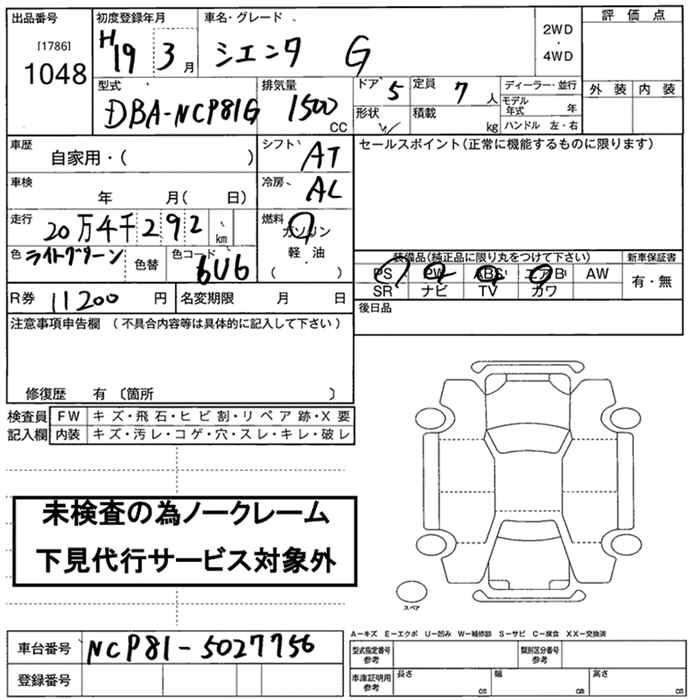 出品番号 初度登録年月 車名・グレード 評価点
[1786] H19 3月 シエンタ G 2WD・4WD
1048 外装 内装
型式 排気量 ドア 5 定員 7人 ディーラー・並行
DBA-NCP81G 1500CC 形状 積載 kg モデル年式 年
ハンドル 左・右
車歴 シフト AT セールスポイント(正常に機能するものに限ります)
自家用・( )
車検 年 月( 日) 冷房 AC
走行 20万4千292km 燃料 ガソリン
軽油
( )
色 ライトグリーン 色替 色コード 6U6
装備品(純正品に限り丸をつけて下さい) 新車保証書
PS PW ABS エアB AW 有・無
SR ナビ TV カワ
R券 11200円 名変期限 月 日 後日品
注意事項申告欄 (不具合内容等は具体的に記入して下さい)
修復歴 有 〔箇所 〕
検査員 FW キズ・飛石・ヒビ割・リペア跡・X要
記入欄 内装 キズ・汚レ・コゲ・穴・スレ・キレ・破レ
未検査の為ノークレーム
下見代行サービス対象外
スペア
A-キズ E-エクボ U-凹み W-補修跡 S-サビ C-腐食 XX-交換済
車台番号 NCP81-5027756
型式指定番号 参考 類別区分番号 参考
登録番号
車庫証明用 参考 長さ cm 幅 cm 高さ cm